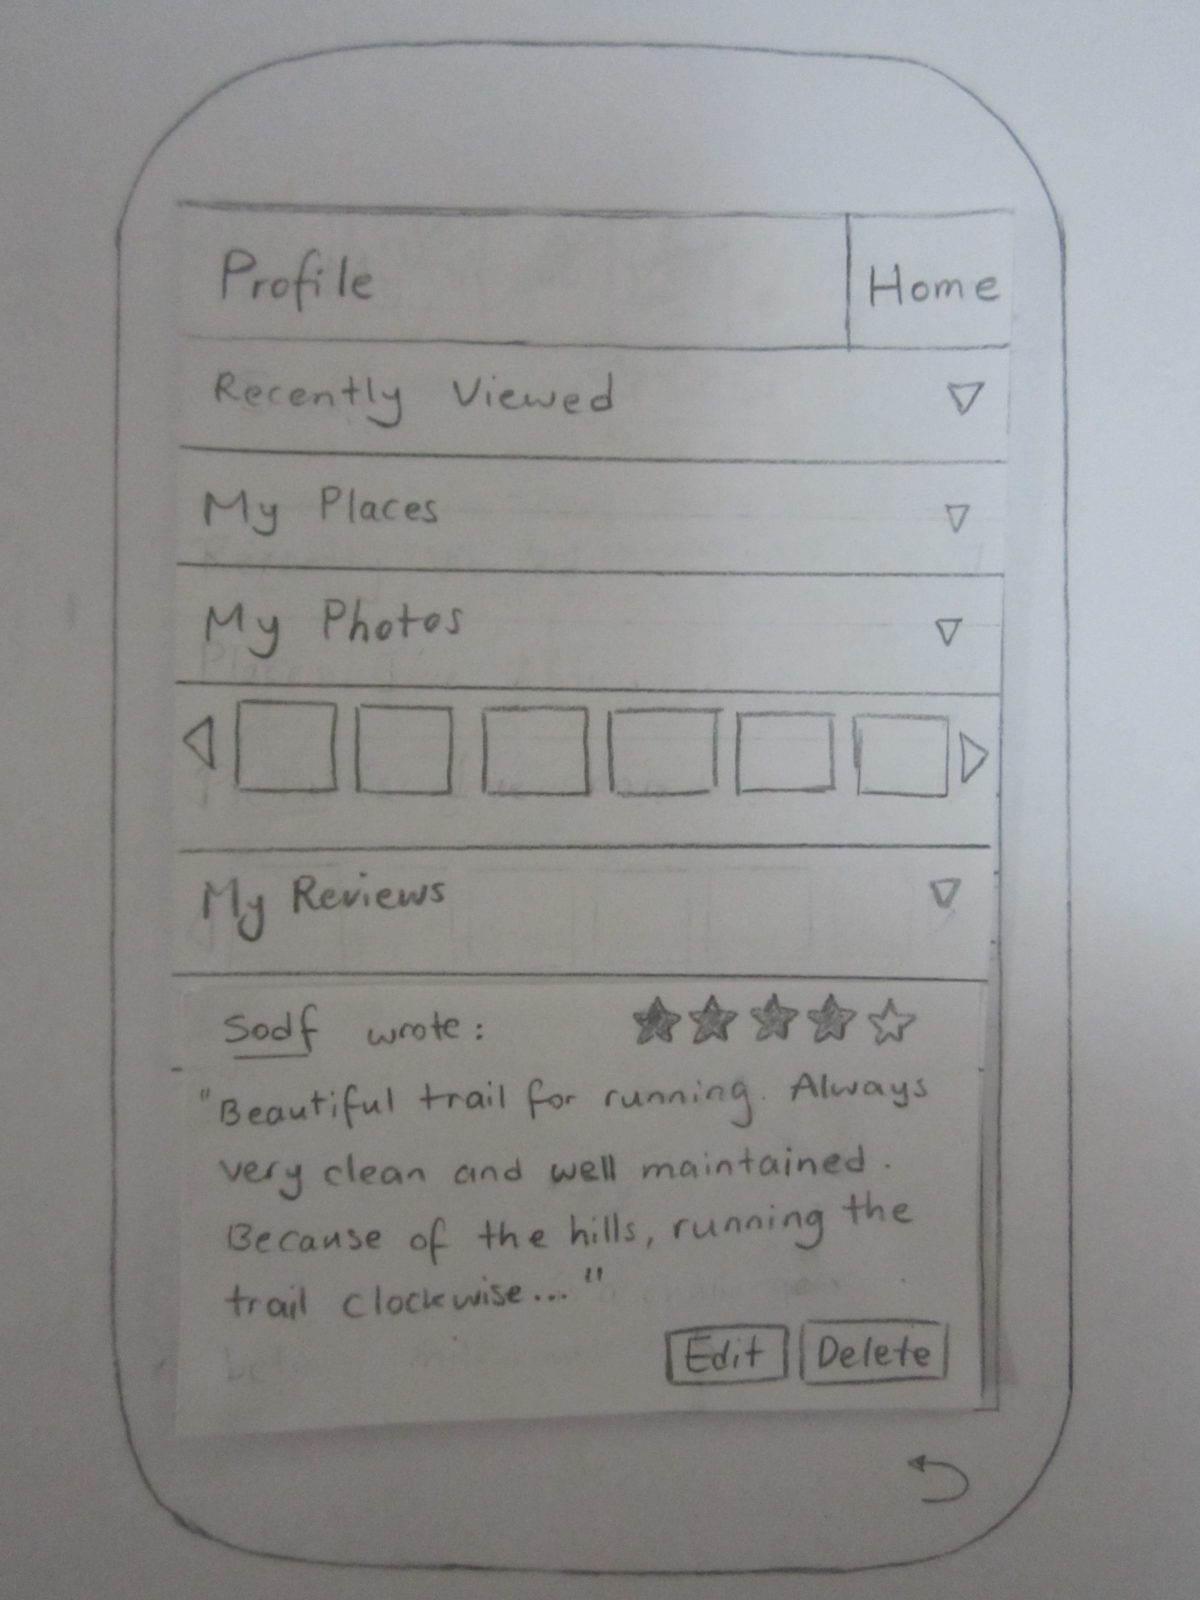 Profile
Home
Recently Viewed
My Places
My Photos
My Reviews
Sodf wrote:
"Beautiful trail for running. Always
very clean and well maintained.
Because of the hills, running the
trail clockwise..."
Edit
Delete